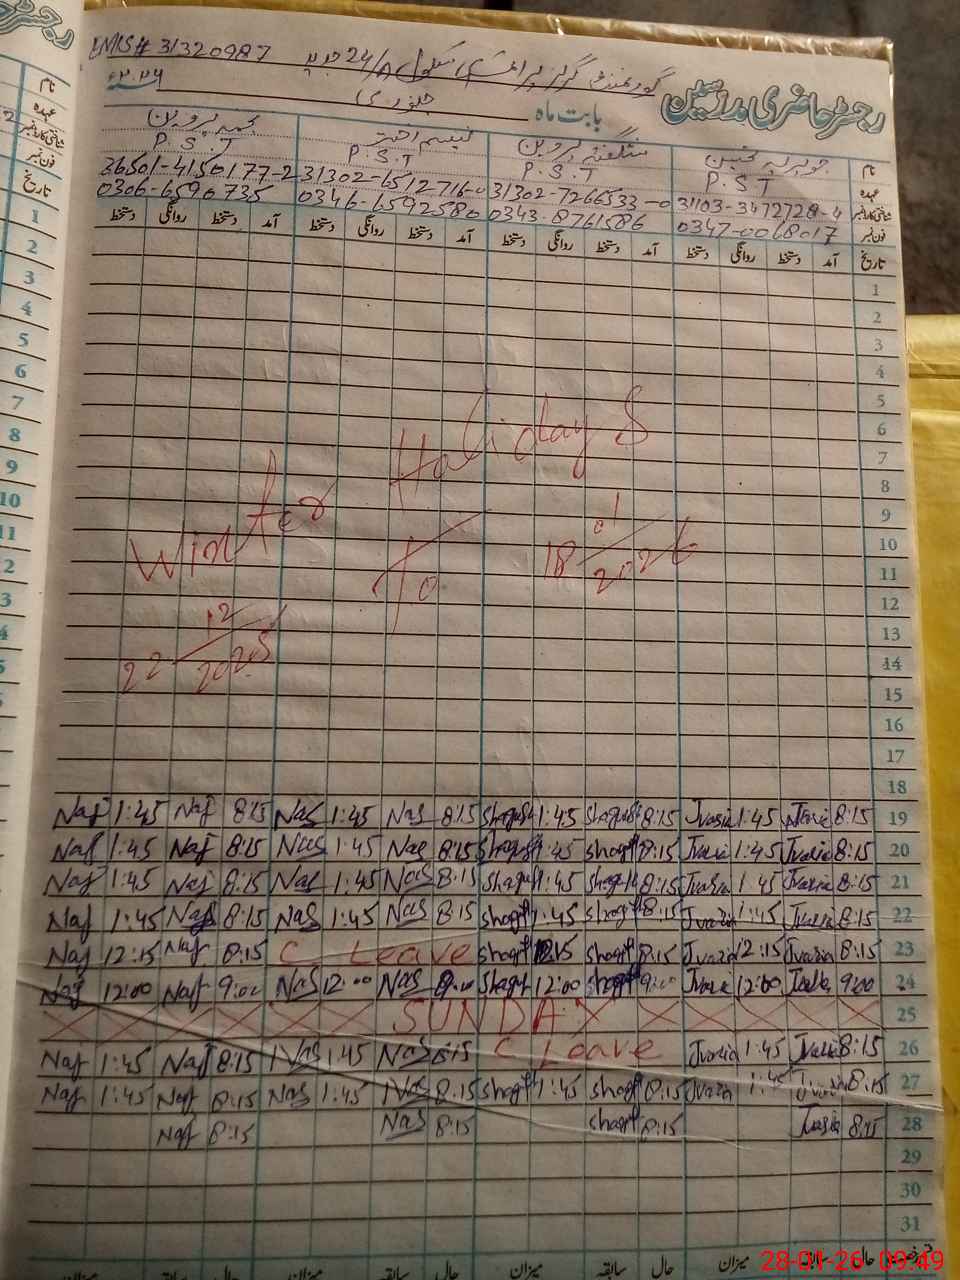 رجسٹر حاضری مدرسین
EMIS# 31320987
گورنمنٹ گرلز پرائمری سکول 24/A
بابت ماہ جنوری
نام
نجمہ پروین نسیم اختر شگفتہ پروین جویریہ
عہدہ P.S.T P.S.T P.S.T P.S.T
شناختی کارڈ نمبر 36501-4150177-2 31302-6512716-0 31302-7266533-0 31103-3472728-4
فون نمبر 0306-6590735 0346-6592580 0343-8761586 0347-0068017
تاریخ آمد دستخط روانگی دستخط آمد دستخط روانگی دستخط آمد دستخط روانگی دستخط آمد دستخط روانگی دستخط
1
2
3
4
5
6
7
8
9
10
11
12
13
14
15
16
17
18
Winter Holidays
22 12/2025 To 18 01/2026
Naj 1:45 Naj 8:15 Nas 1:45 Nas 8:15 Shaguft 1:45 Shaguft 8:15 Jvaria 1:45 Jvaria 8:15 19
Naj 1:45 Naj 8:15 Nas 1:45 Nas 8:15 Shaguft 1:45 Shagft 8:15 Jvaria 1:45 Jvaria 8:15 20
Naj 1:45 Naj 8:15 Nas 1:45 Nas 8:15 Shaguft 1:45 Shaguft 8:15 Jvaria 1:45 Jvaria 8:15 21
Naj 1:45 Naj 8:15 Nas 1:45 Nas 8:15 Shagft 1:45 Shagft 8:15 Jvaria 1:45 Jvaria 8:15 22
Naj 12:15 Naj 8:15 C Leave Shagft 12:15 Shagft 8:15 Jvaria 12:15 Jvaria 8:15 23
Naj 12:00 Naj 9:00 Nas 12:00 Nas 9:00 Shagft 12:00 Shagft 9:00 Jvaria 12:00 Jvaria 9:00 24
SUNDAY 25
Naj 1:45 Naj 8:15 Nas 1:45 Nas 8:15 C Leave Jvaria 1:45 Jvaria 8:15 26
Naj 1:45 Naj 8:15 Nas 1:45 Nas 8:15 Shagft 1:45 Shagft 8:15 Jvaria 1:45 Jvaria 8:15 27
Naj 8:15 Nas 8:15 Shagft 8:15 Jvaria 8:15 28
29
30
31
حال سابقہ میزان حال سابقہ میزان حال سابقہ میزان
28-01-26 09:49